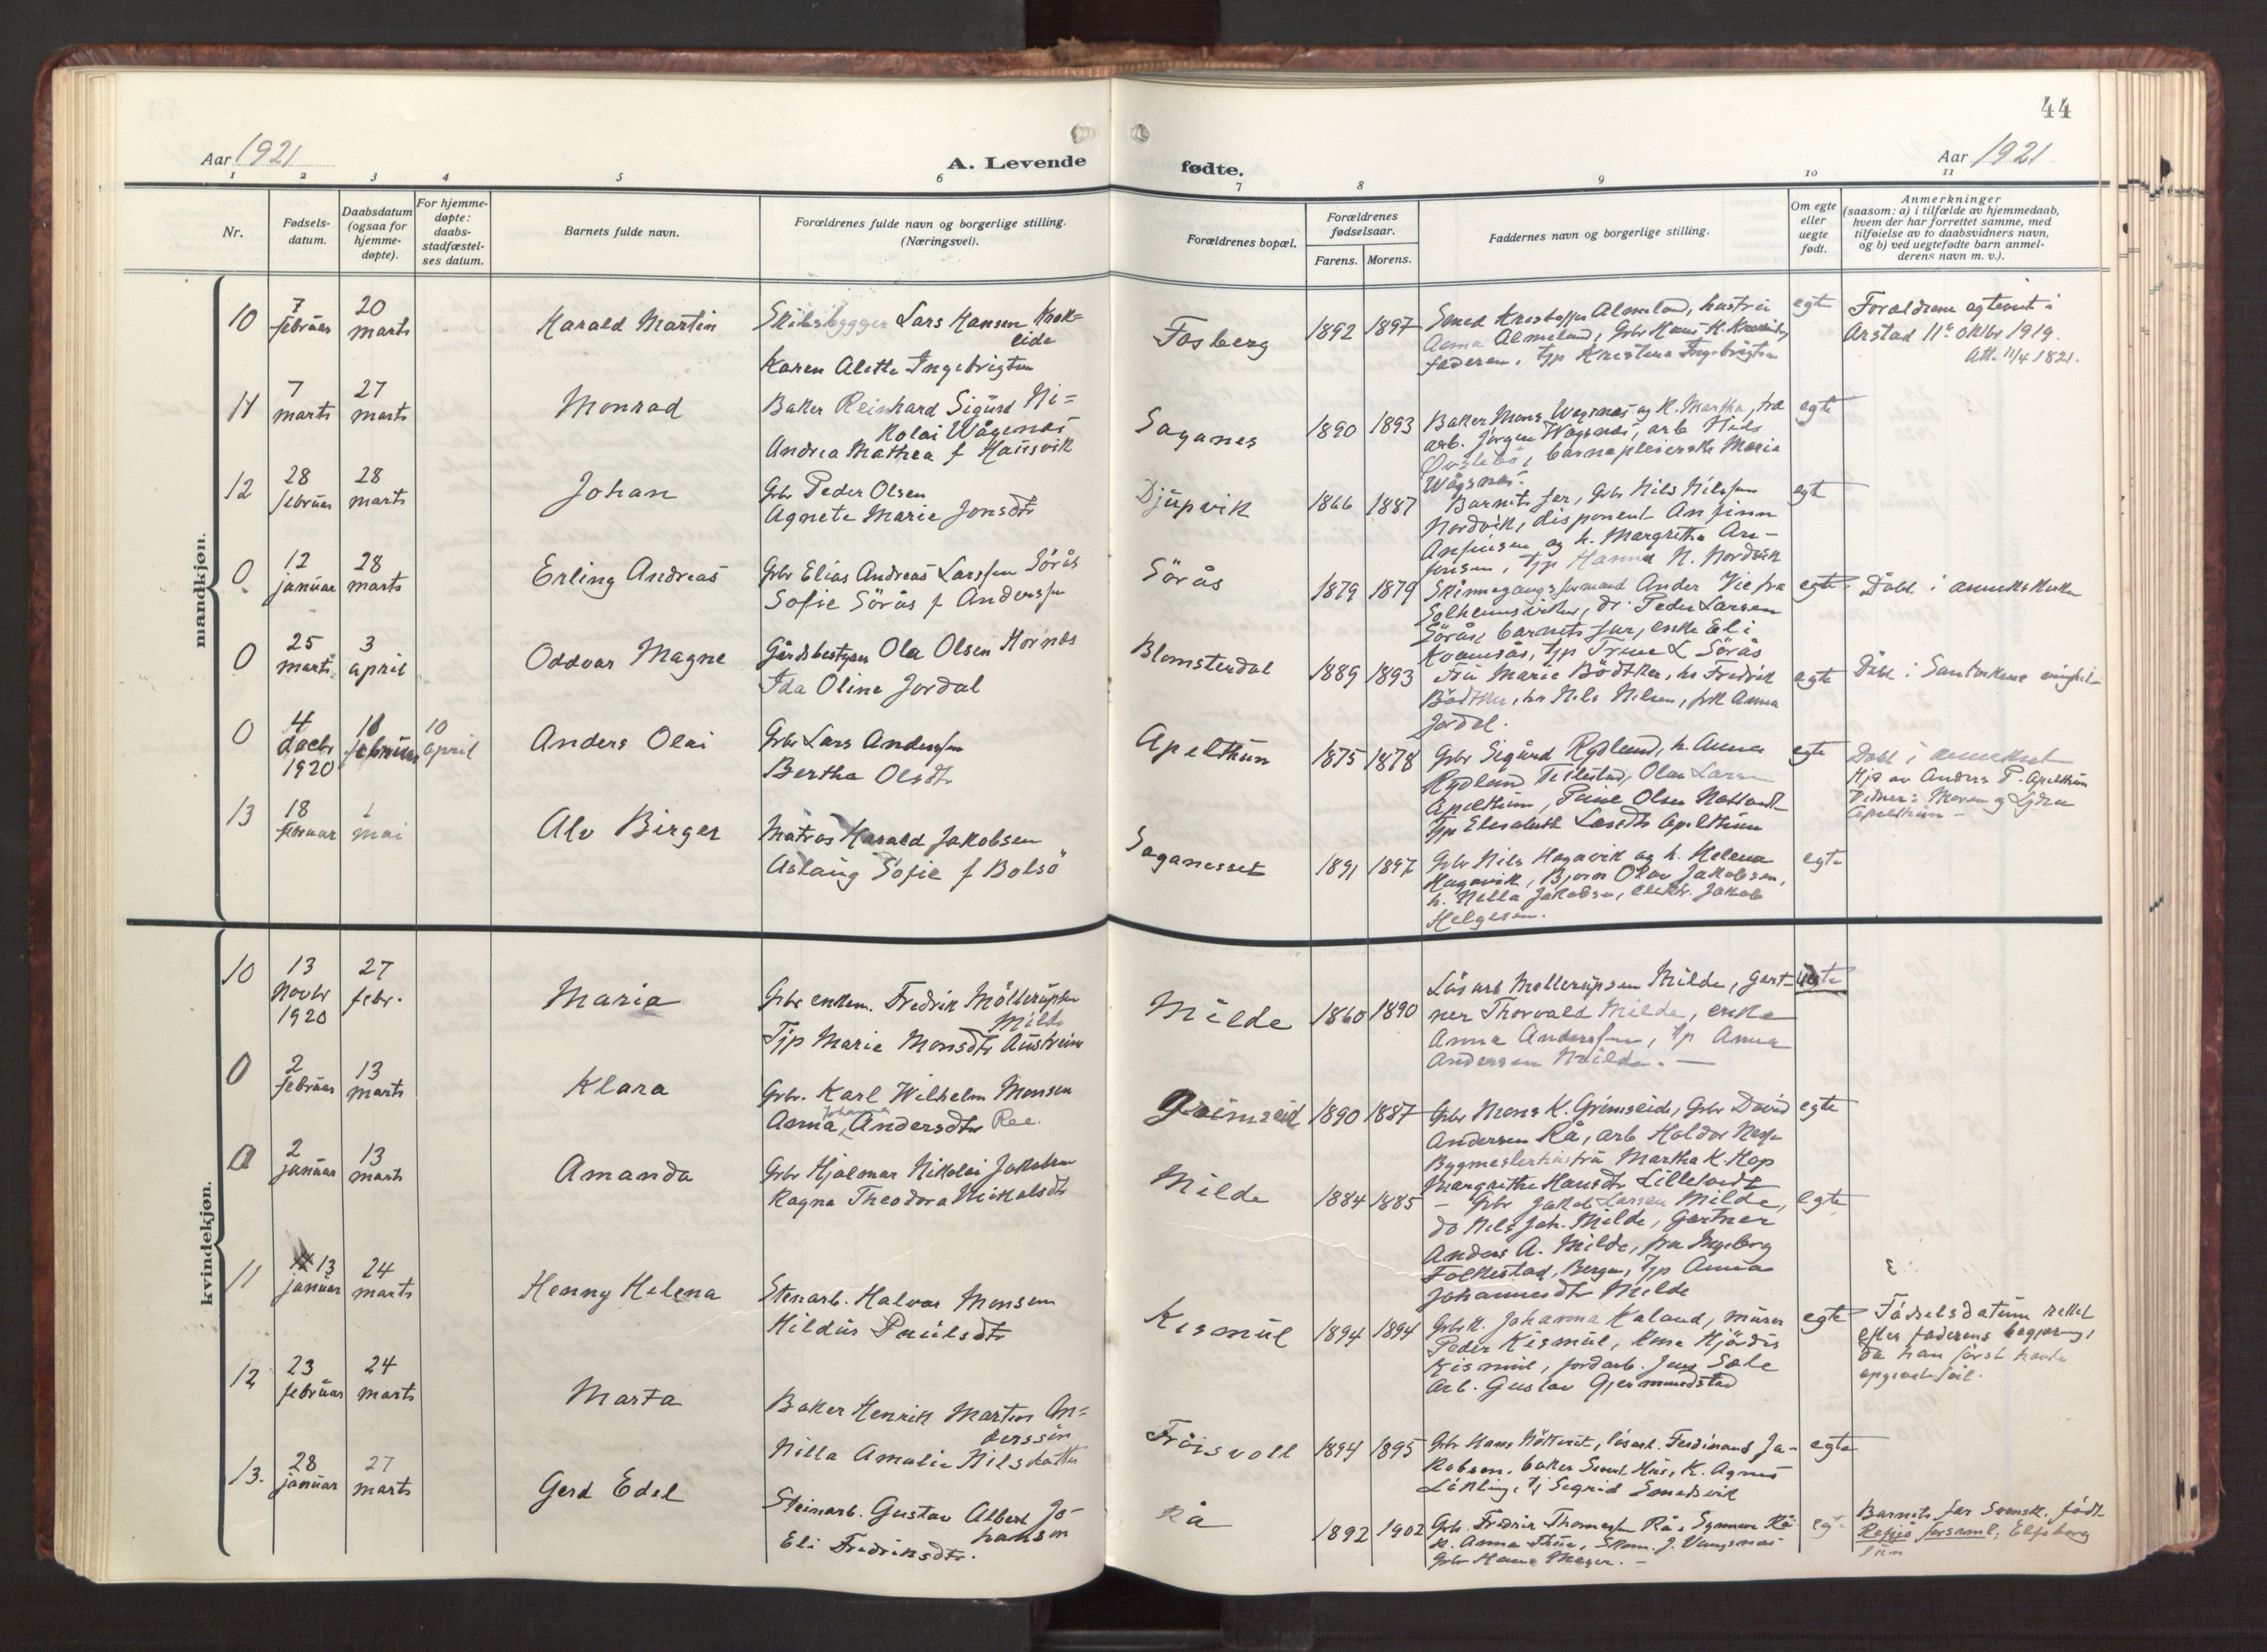 44
Aar 1921
A. Levende
fødte.
Aar 1921
1 2 3 4 5 6 7 8 9 10 11
Nr.
Fødsels-
datum.
Daabsdatum
(ogsaa for
hjemme-
døpte).
For hjemme-
døpte:
daabs-
stadfæstel-
ses datum.
Barnets fulde navn.
Forældrenes fulde navn og borgerlige stilling.
(Næringsvei).
Forældrenes bopæl.
Forældrenes
fødselsaar.
Farens. Morens.
Faddernes navn og borgerlige stilling.
Om egte
eller
uegte
født.
Anmerkninger
(saasom: a) i tilfælde av hjemmedaab,
hvem der har forrettet samme, med
tilføielse av to daabsvidners navn,
og b) ved uegtefødte barn anmel-
derens navn m. v.).
mandkjøn.
10
7
februar
20
marts
Harald Martin
Skibsbygger Lars Hansen Krok-
eide
Karen Alette Ingebrigtsen
Fosberg
1892 1897
Smed Kristoffer Almeland, hustru
Anna Almeland, Gbr Hans H.
faderen, tjp Kristina Ingebrigtsen
egte
Forældrene egteviet i
Årstad 11te oktbr 1919.
Att. 11/4 1821.
11
7
marts
27
marts
Monrad
Baker Reinhard Sigurd Ni=
kolai Wågenæs
Andrea Mathea f Hausvik
Saganes
1890 1893
Baker Mons Wågsnes og K. Martha, fra
arb. Jørgen Wågsnes, arb Nils
barnepleierske Marie
Wågsnes.
egte
12
28
februar
28
marts
Johan
Gbr Peder Olsen
Agnete Marie Jonsdtr
Djupvik
1866 1887
Barnets far, Gbr Nils Nilssen
Nordvik, disponent Anfinn
Anfinsen og h. Margretha An-
finsen, tjp Hanna N. Nordvik
egt
0
12
januar
28
marts
Erling Andreas
Gbr Elias Andreas Larssen Sørås
Sofie Sørås f Anderssen
Sørås
1879 1879
Skinnegangsformand Ander Vie fra
Solheimsviken, do Peder Larsen
Sørås, barnets far, enke Eli
Kvamsås, tjp Trine L Sørås
egte
Døbt i annekskirken
0
25
marts
3
april
Oddvar Magne
Gårdsbestyrer Ola Olsen Hornæs
Ida Oline Jordal
Blomsterdal
1889 1893
Fru Marie Bødtker, hr Fredrik
Bødtker, hr Nils Nilsen, frk Anna
Jordal.
egte
Døbt i
0
4
decbr
1920
februar
10
april
Anders Olai
Gbr Lars Anderssen
Bertha Olsdtr
Apelthun
1875 1878
Gbr Sigurd Rydland, h. Anna
Rydland Teilestad, Olav Larsen
Apelthun, Trine Olsen
tjp Elisabeth Larsdtr Apelthun
egte
Døbt i annekset
Hjd av Anders P. Apelthun
Vidner: Moren og Lydia
Apelthun -
13
18
februar
1
mai
Alv Birger
Matros Harald Jakobsen
Aslaug Sofie f Bolsö
Saganesset
1891 1897
Gbr Nils Hagavik og h. Helena
Hagavik, Bjorn Olav Jakobsen,
h. Nilla Jakobsen, elektr. Jakob
Helgesen.
egte
kvindekjøn.
10
13
Novbr
1920
27
febr.
Maria
Gbr enkem. Fredrik Möllerupsen
Milde
Tjp Marie Monsdtr Austrheim
Milde
1860 1890
Løsarb Mollerupsen Milde, gart-
ner Thorvald Milde, enke
Anna Anderssen, tjp Anna
Andersen Milde. —
uegte
0
2
februar
13
marts
Klara
Gbr. Karl Wilhelm Monsen
Anna Johanna Andersdtr Ree.
Grimseid
1890 1887
Gbr Mons K. Grimseide, Gbr David
Andersen Rå, arb Haldor
Bygmesterhustru Martha K. Hop
Margrethe Hansdtr Lilletvedt
egte
0
2
januar
13
marts
Amanda
Gbr Hjalmar Nikolai Jakobsen
Ragna Theodora Nikolaisdtr
Milde
1884 1885
- Gbr Jakob Larsen Milde,
do Nils Joh. Milde, Gartner
Anders A. Milde, fru Ingeborg
Folkestad, Bergen, tjp Anna
Johannesdtr Milde
egte
11
13
januar
24
marts
Henny Helena
Stenarb. Halvar Monsen
Hildur Paulsdtr
Kismul
1894 1894
Gbrk. Johanna Kaland, murer
Peder Kismul, Kone Hjørdis
Kismul, jordarb. Jens Sæle
Arb. Gustav Gjermundstad
egte
Fødselsdatum rettet
efter faderens begjæring,
da han først havde
opgivet feil.
12
23
februar
24
marts
Marta
Baker Henrik Martin An=
derssen
Nilla Amalie Nilsdatter
Frøisvoll
1894 1895
Gbr Hans Høltveit, løsarb. Ferdinand Ja-
kobsen, baker Sivert Hus, K. Agnes
Løkling, tj Sigrid Smedsvik
egte
13.
28
januar
27
marts
Gerd Edel
Steinarb. Gustav Albert Jo-
hanson
Eli Fredriksdtr.
Rå
1892 1902
Gbr. Fredrik Thomassen Rå, Synneve Rå
K. Anna Thue, Skom. J. Vangsnes
Gbr Hans Meyer. —
egte
Barnets far svensk, født
forsaml. Elfsborg
län